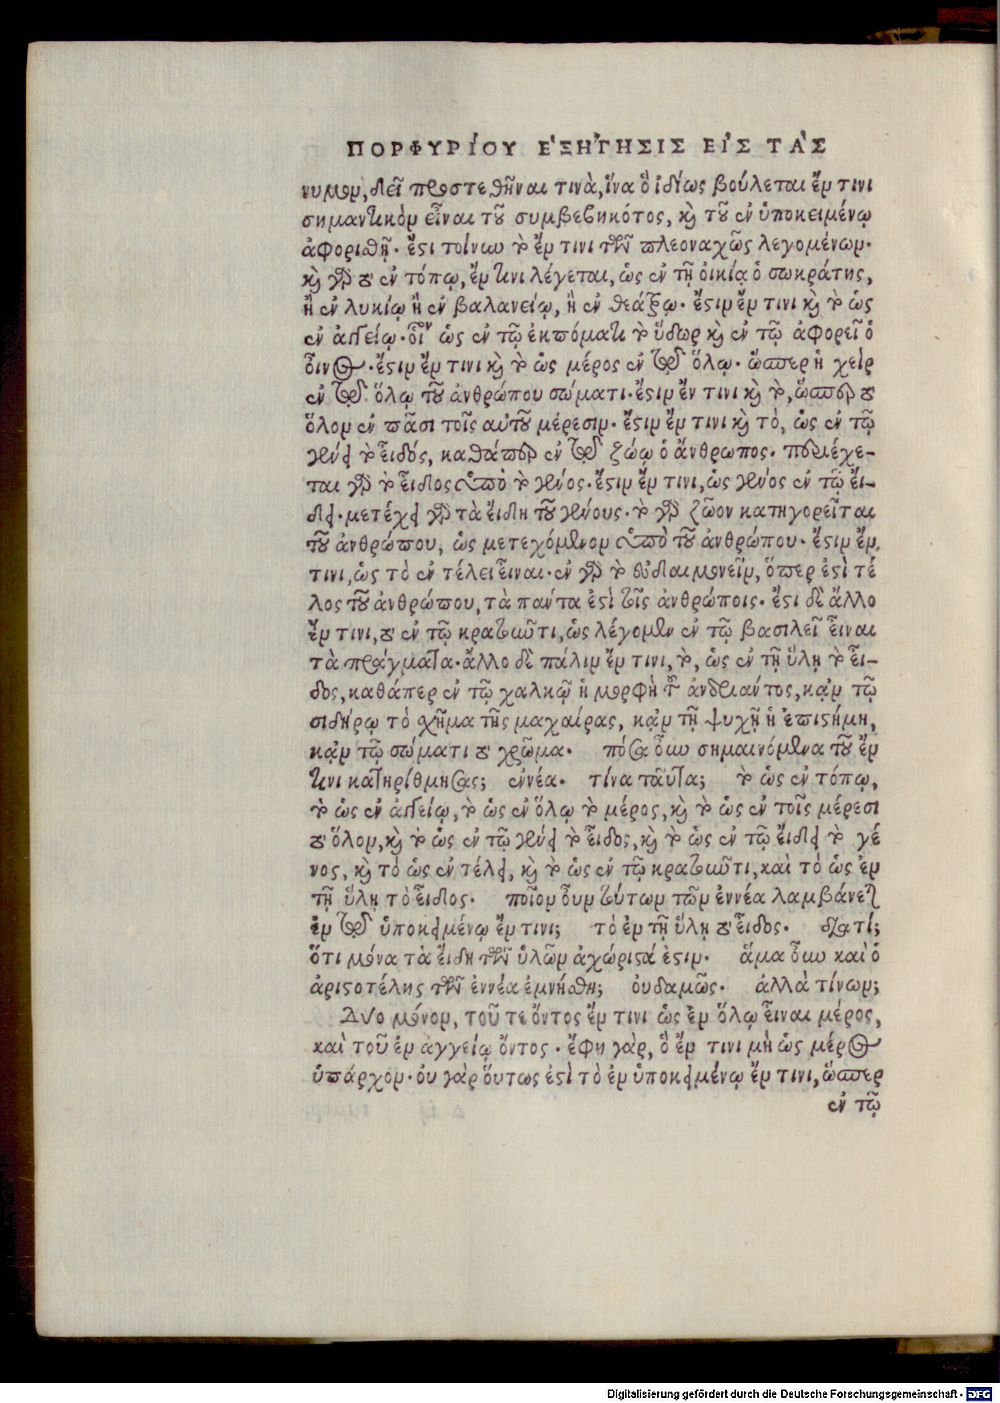 ΠΟΡΦΥΡΙΌΥ ΕἘΞΗΓΗΣΙΣ ΕΙΣ ΤᾺΣ
νυμον, δεῖ προστεθῆναι τινὰ, ἵνα ὃ ἰδίως βούλεται ἔν τινι
σημαντικὸν εἶναι τοῦ συμβεβηκότος, καὶ τοῦ ἐν ὑποκειμένῳ
ἀφορισθῇ. ἔστι τοίνυν τὸ ἔν τινι τῶν πλεοναχῶς λεγομένων.
καὶ γὰρ τὸ ἐν τόπῳ, ἔν τινι λέγεται, ὡς ἐν τῇ οἰκίᾳ ὁ σωκράτης,
ἢ ἐν λυκίῳ ἢ ἐν βαλανείῳ, ἢ ἐν θεάτρῳ. ἔστιν ἔν τινι καὶ τὸ ὡς
ἐν ἀγγείῳ. οἷον ὡς ἐν τῷ ἐκπόματι τὸ ὕδωρ καὶ ἐν τῷ ἀφορεῖ ὁ
οἶνος. ἔστιν ἔν τινι καὶ τὸ ὡς μέρος ἐν τῷ ὅλῳ. ὥσπερ ἡ χεὶρ
ἐν τῷ ὅλῳ τοῦ ἀνθρώπου σώματι. ἔστιν ἔν τινι καὶ τὸ, ὥσπερ τὸ
ὅλον ἐν πᾶσι τοῖς αὑτοῦ μέρεσιν. ἔστιν ἔν τινι καὶ τὸ, ὡς ἐν τῷ
γένει τὸ εἶδός, καθάπερ ἐν τῷ ζώῳ ὁ ἄνθρωπος. περιέχε-
ται γὰρ τὸ εἶδος ὑπὸ τὸ γένος. ἔστιν ἔν τινι, ὡς γένος ἐν τῷ εἴ-
δει. μετέχει γὰρ τὰ εἴδη τοῦ γένους. τὸ γὰρ ζῶον κατηγορεῖται
τοῦ ἀνθρώπου, ὡς μετεχόμενον ὑπὸ τοῦ ἀνθρώπου. ἔστιν ἔν
τινι, ὡς τὸ ἐν τέλει εἶναι. ἐν γὰρ τὸ εὐδαιμονεῖν, ὅπερ ἐστὶ τέ
λος τοῦ ἀνθρώπου, τὰ πάντα ἐστὶ τοῖς ἀνθρώποις. ἔστι δὲ ἄλλο
ἔν τινι, τὸ ἐν τῷ κρατοῦντι, ὡς λέγομεν ἐν τῷ βασιλεῖ εἶναι
τὰ πράγματα. ἄλλο δὲ πάλιν ἔν τινι, τὸ, ὡς ἐν τῇ ὕλῃ τὸ εἶ-
δος, καθάπερ ἐν τῷ χαλκῷ ἡ μορφὴ τοῦ ἀνδριαντος, κᾀν τῷ
σιδήρῳ τὸ σχῆμα τῆς μαχαίρας, κᾀν τῇ ψυχῇ ἡ ἐπιστήμη,
κᾀν τῷ σώματι τὸ χρῶμα. πόσα οὖν σημαινόμενα τοῦ ἔν
τινι κατηρίθμησας; ἐννέα. τίνα ταῦτα; τὸ ὡς ἐν τόπῳ,
τὸ ὡς ἐν ἀγγείῳ, τὸ ὡς ἐν ὅλῳ τὸ μέρος, καὶ τὸ ὡς ἐν τοῖς μέρεσι
τὸ ὅλον, καὶ τὸ ὡς ἐν τῷ γένει τὸ εἶδος, καὶ τὸ ὡς ἐν τῷ εἴδει τὸ γέ
νος, καὶ τὸ ὡς ἐν τέλει, καὶ τὸ ὡς ἐν τῷ κρατοῦντι, καὶ τὸ ὡς ἐν
τῇ ὕλῃ τὸ εἶδος. ποῖον οὖν τούτων τῶν ἐννέα λαμβάνεται
ἐν τῷ ὑποκειμένῳ ἔν τινι; τὸ ἐν τῇ ὕλῃ τὸ εἶδος. διατί;
ὅτι μόνα τὰ εἴδη τῶν ὑλῶν ἀχώριστά ἐστιν. ἅμα οὖν καὶ ὁ
ἀριστοτέλης τῶν ἐννέα ἐμνήσθη; οὐδαμῶς. ἀλλὰ τίνων;
Δύο μόνον, τοῦ τε ὄντος ἔν τινι ὡς ἐν ὅλῳ εἶναι μέρος,
καὶ τοῦ ἐν ἀγγείῳ ὄντος. ἔφη γὰρ, ὃ ἔν τινι μὴ ὡς μέρος
ὑπάρχον. οὐ γὰρ οὕτως ἐστὶ τὸ ἐν ὑποκειμένῳ ἔν τινι, ὥσπερ
ἐν τῷ
Digitalisierung gefördert durch die Deutsche Forschungsgemeinschaft - DFG